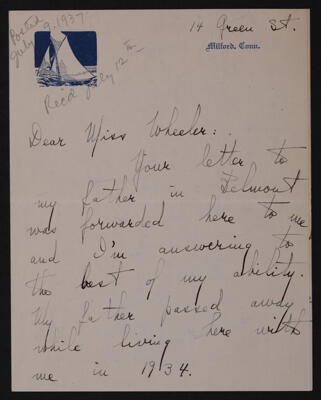 Posted
July 9, 1937
Rec'd July 12th
14 Green St.
Milford, Conn.
Dear Miss Wheeler:
Your letter to
my father in Belmont
was forwarded here to me
and I'm answering to
the best of my ability.
My father passed away
while living here with
me in 1934.